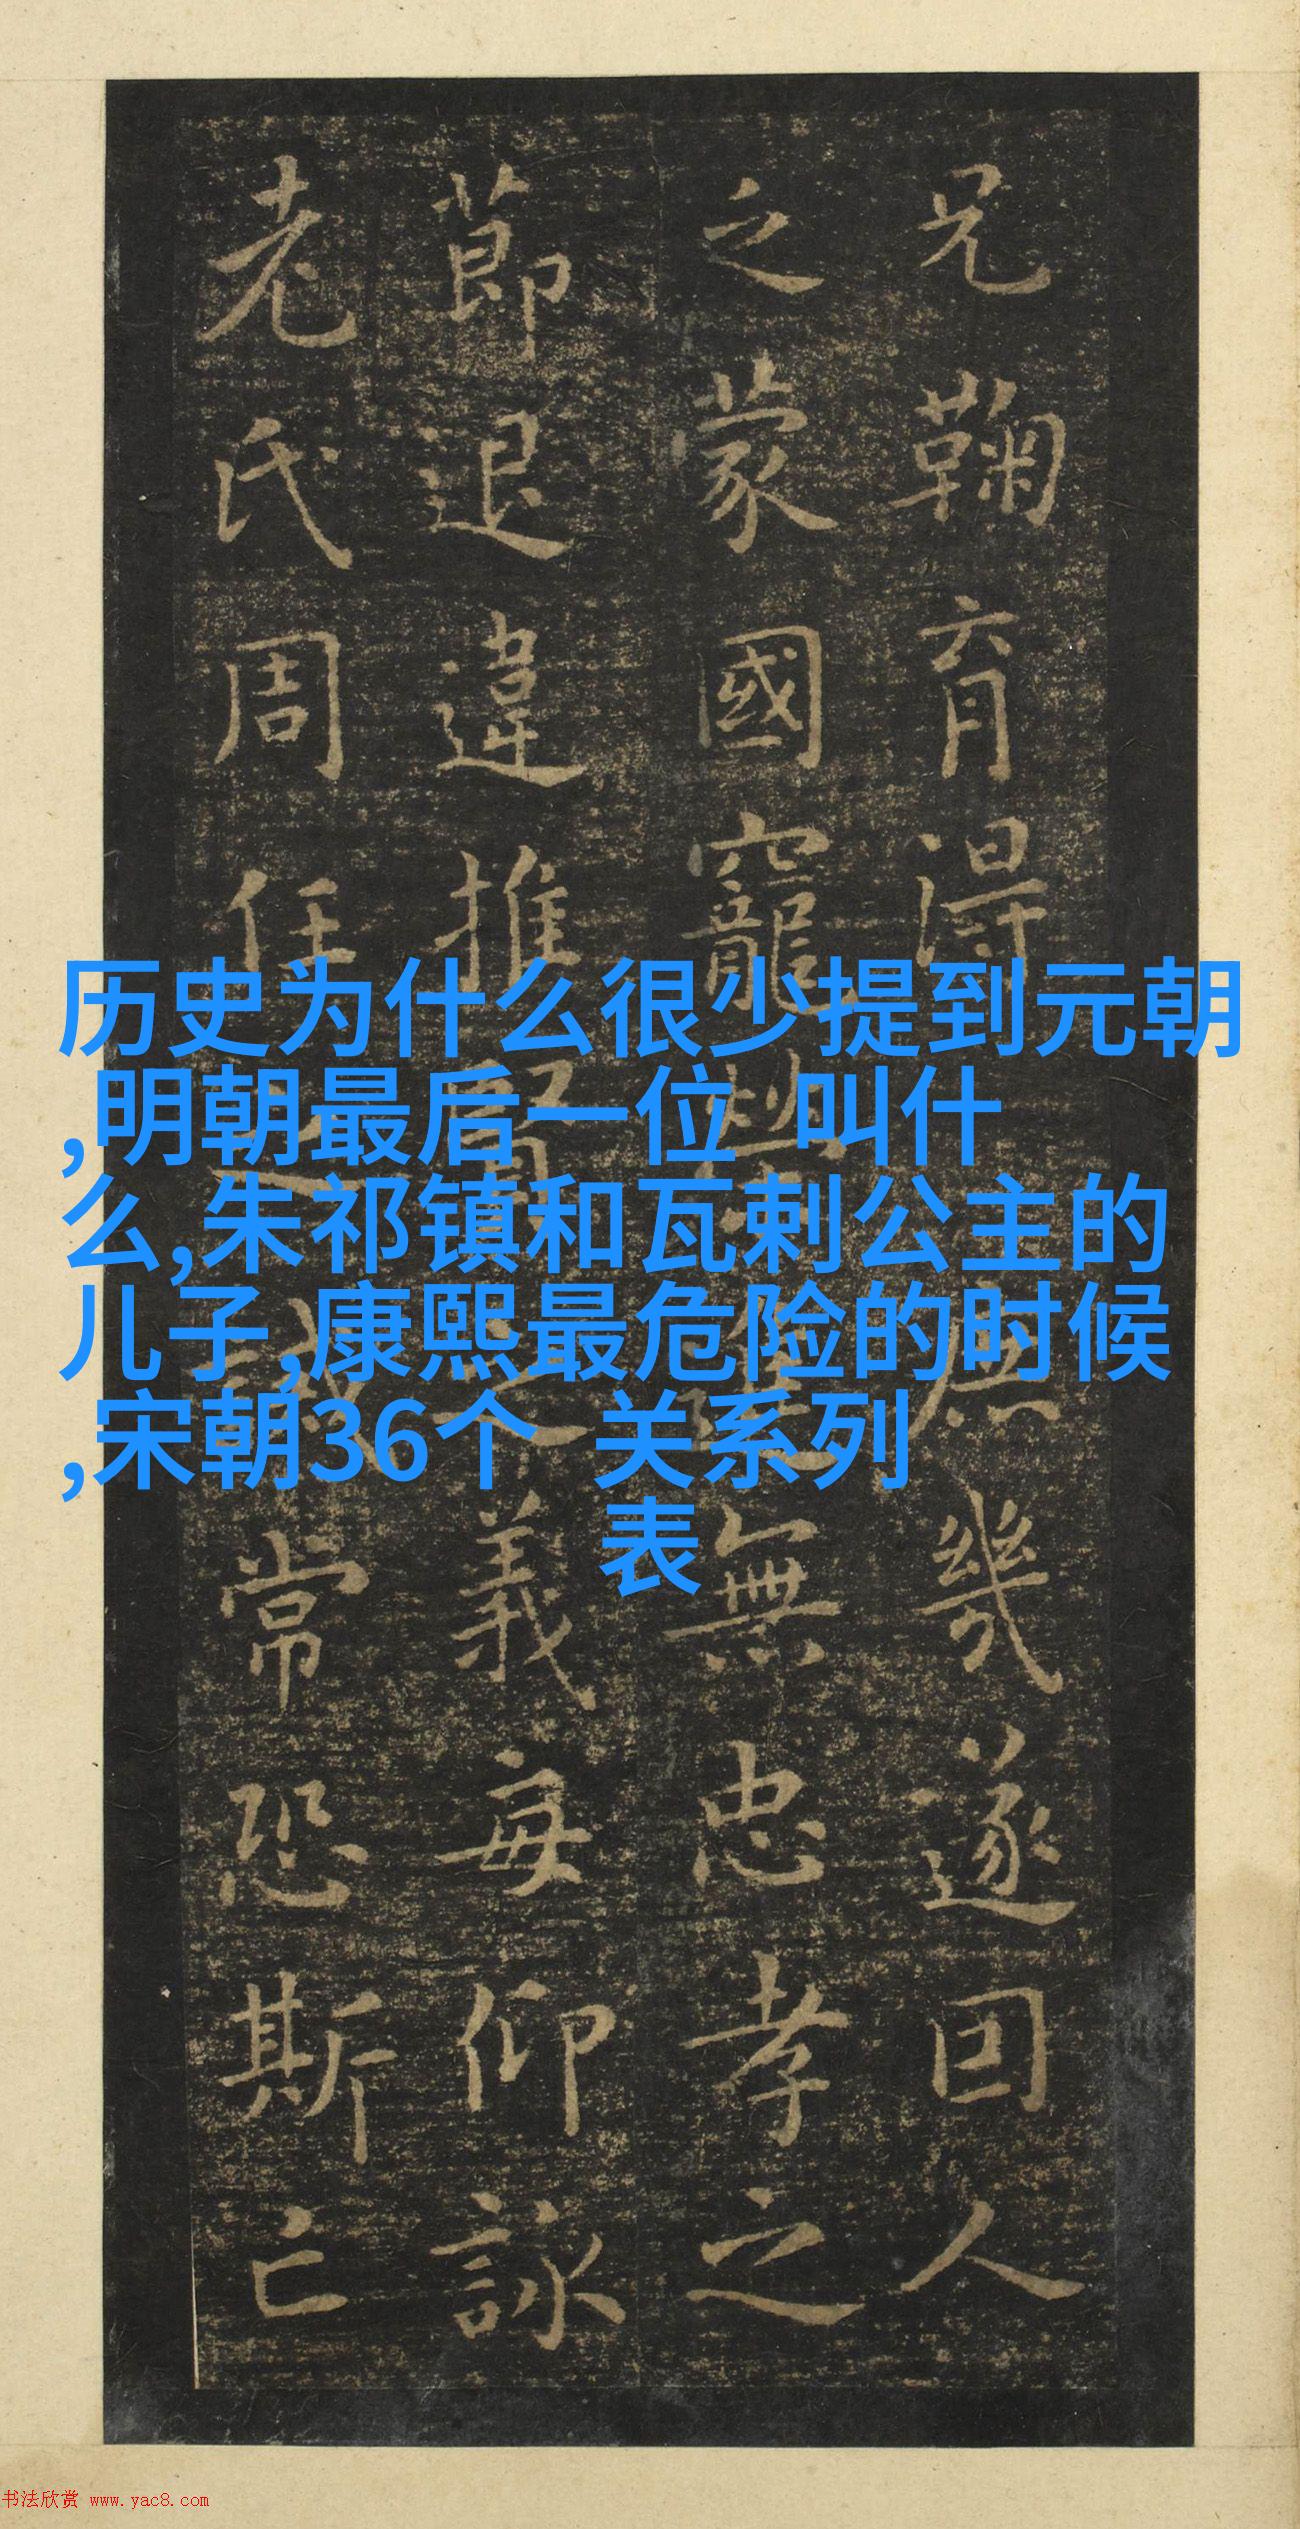 历史为什么很少提到元朝
,明朝最后一位 叫什
么,朱祁镇和瓦剌公主的
儿子,康熙最危险的时候
,宋朝36个 关系列
表
兄鞠育得
庶幾遂回人
之蒙國寵
無忠孝之
莭退違推
義每仰詠
老氏周任
常恐斯亡
书法欣赏 www.yac8.com